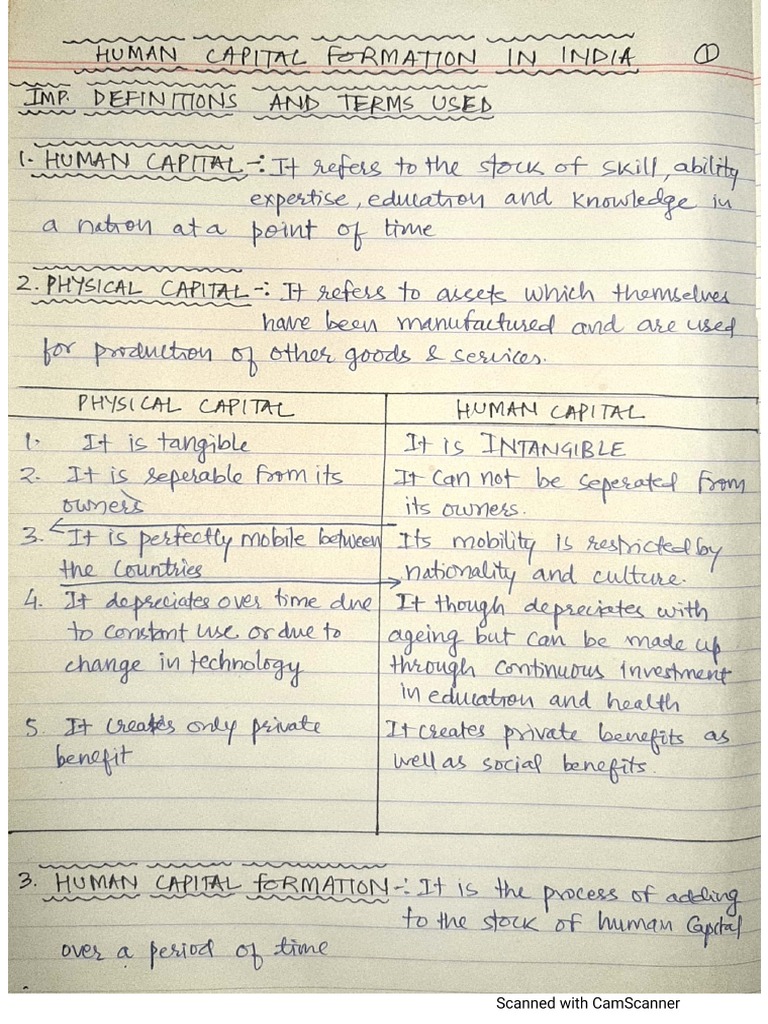 HUMAN CAPITAL FORMATION IN INDIA ①
IMP. DEFINITIONS AND TERMS USED
1. HUMAN CAPITAL -: It refers to the stock of skill, ability
expertise, education and knowledge in
a nation at a point of time
2. PHYSICAL CAPITAL -: It refers to assets which themselves
have been manufactured and are used
for production of other goods & services.
PHYSICAL CAPITAL HUMAN CAPITAL
1. It is tangible It is INTANGIBLE
2. It is seperable from its It can not be seperated from
owners its owners.
3. It is perfectly mobile between Its mobility is restricted by
the countries nationality and culture.
4. It depreciates over time due It though depreciates with
to constant use or due to ageing but can be made up
change in technology through continuous investment
in education and health
5. It creates only private It creates private benefits as
benefit well as social benefits.
3. HUMAN CAPITAL FORMATION -: It is the process of adding
to the stock of human Capital
over a period of time
Scanned with CamScanner